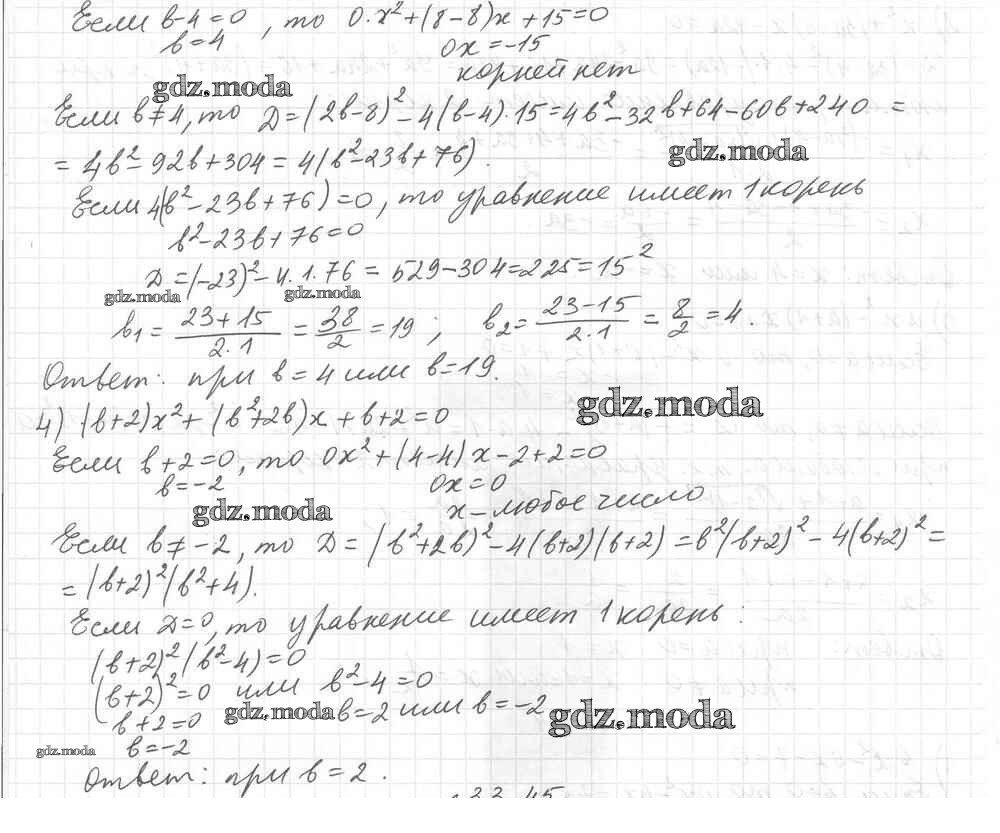 Если b-4=0, то 0·x²+(8-8)x+15=0
b=4 0x=-15
корней нет
gdz.moda
Если b≠4, то Д=(2b-8)²-4(b-4)·15=4b²-32b+64-60b+240=
gdz.moda
=4b²-92b+304=4(b²-23b+76).
Если 4(b²-23b+76)=0, то уравнение имеет 1 корень
b²-23b+76=0
Д=(-23)²-4.1.76=529-304=225=15²
gdz.moda gdz.moda
b₁=(23+15)/(2·1)=38/2=19; b₂=(23-15)/(2·1)=8/2=4.
Ответ: при b=4 или b=19.
gdz.moda
4) (b+2)x²+(b²+2b)x+b+2=0
Если b+2=0, то 0x²+(4-4)x-2+2=0
b=-2 0x=0
gdz.moda x-любое число
Если b≠-2, то Д=(b²+2b)²-4(b+2)(b+2)=b²(b+2)²-4(b+2)²=
=(b+2)²(b²+4).
Если Д=0, то уравнение имеет 1 корень:
(b+2)²(b²-4)=0
(b+2)²=0 или b²-4=0
b+2=0 gdz.moda b=2 или b=-2 gdz.moda
gdz.moda b=-2
Ответ: при b=2.